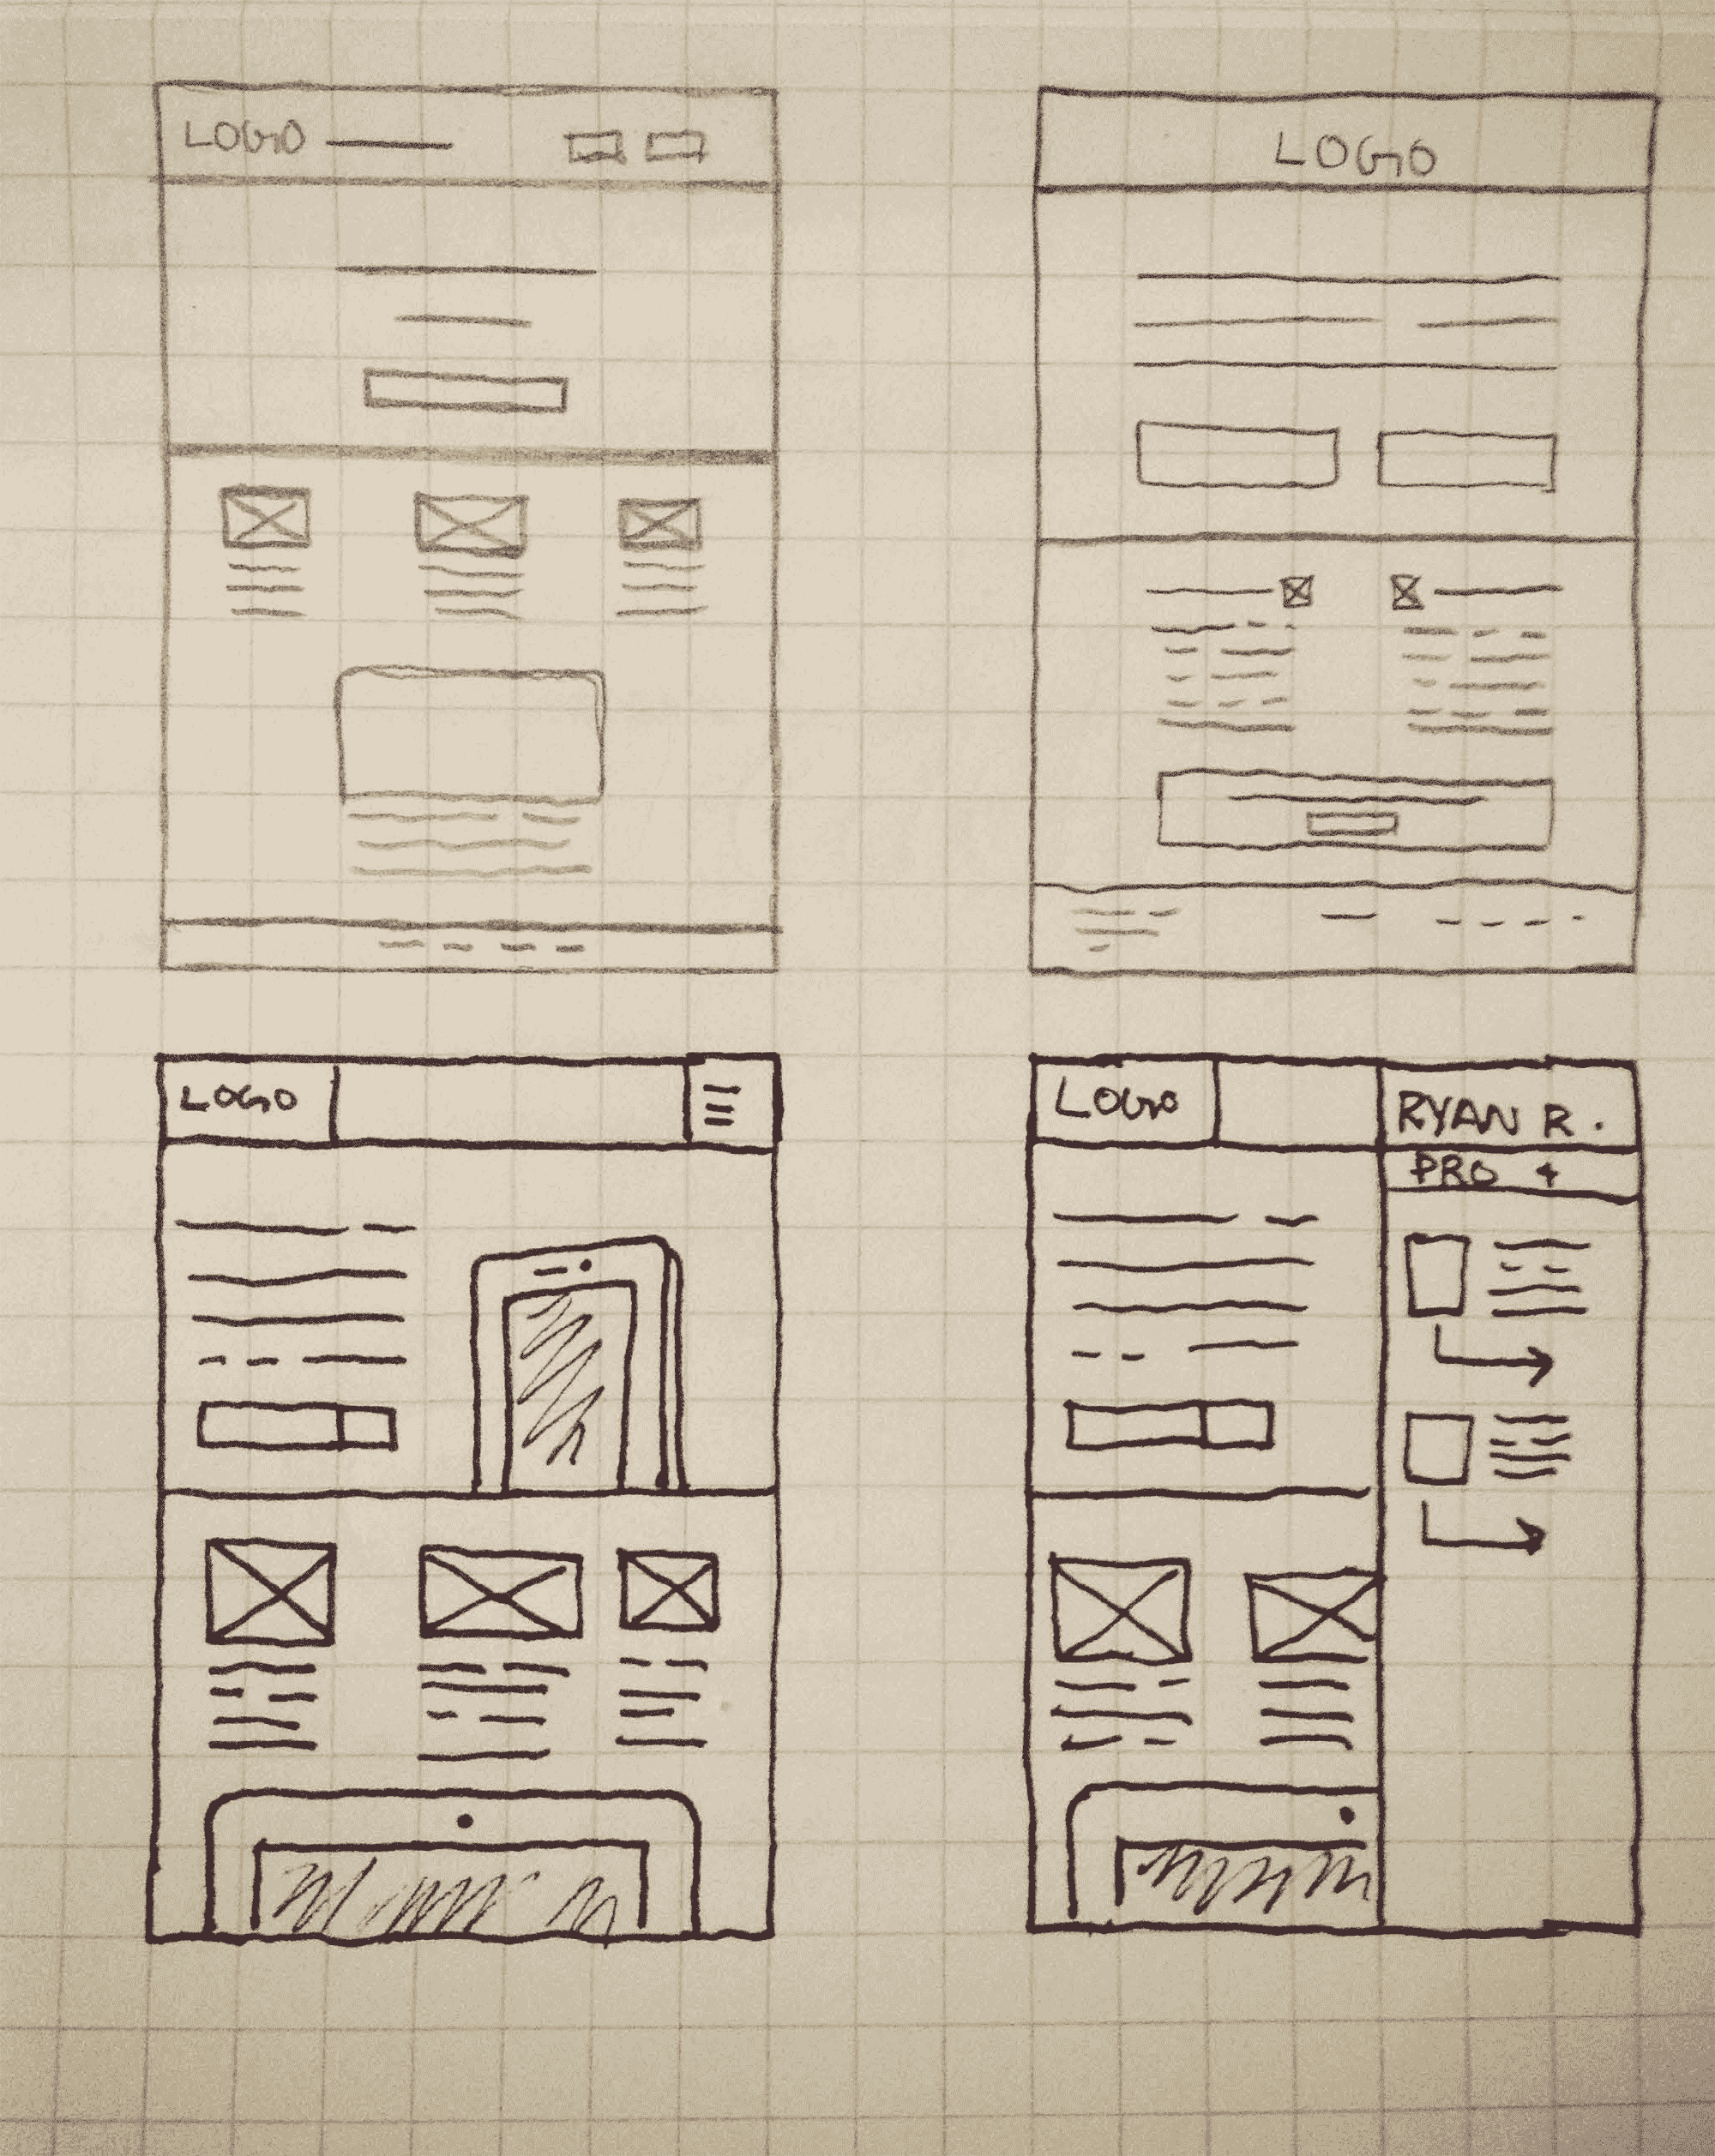 LOGO
LOGO
LOGO
LOGO
RYAN R.
PRO